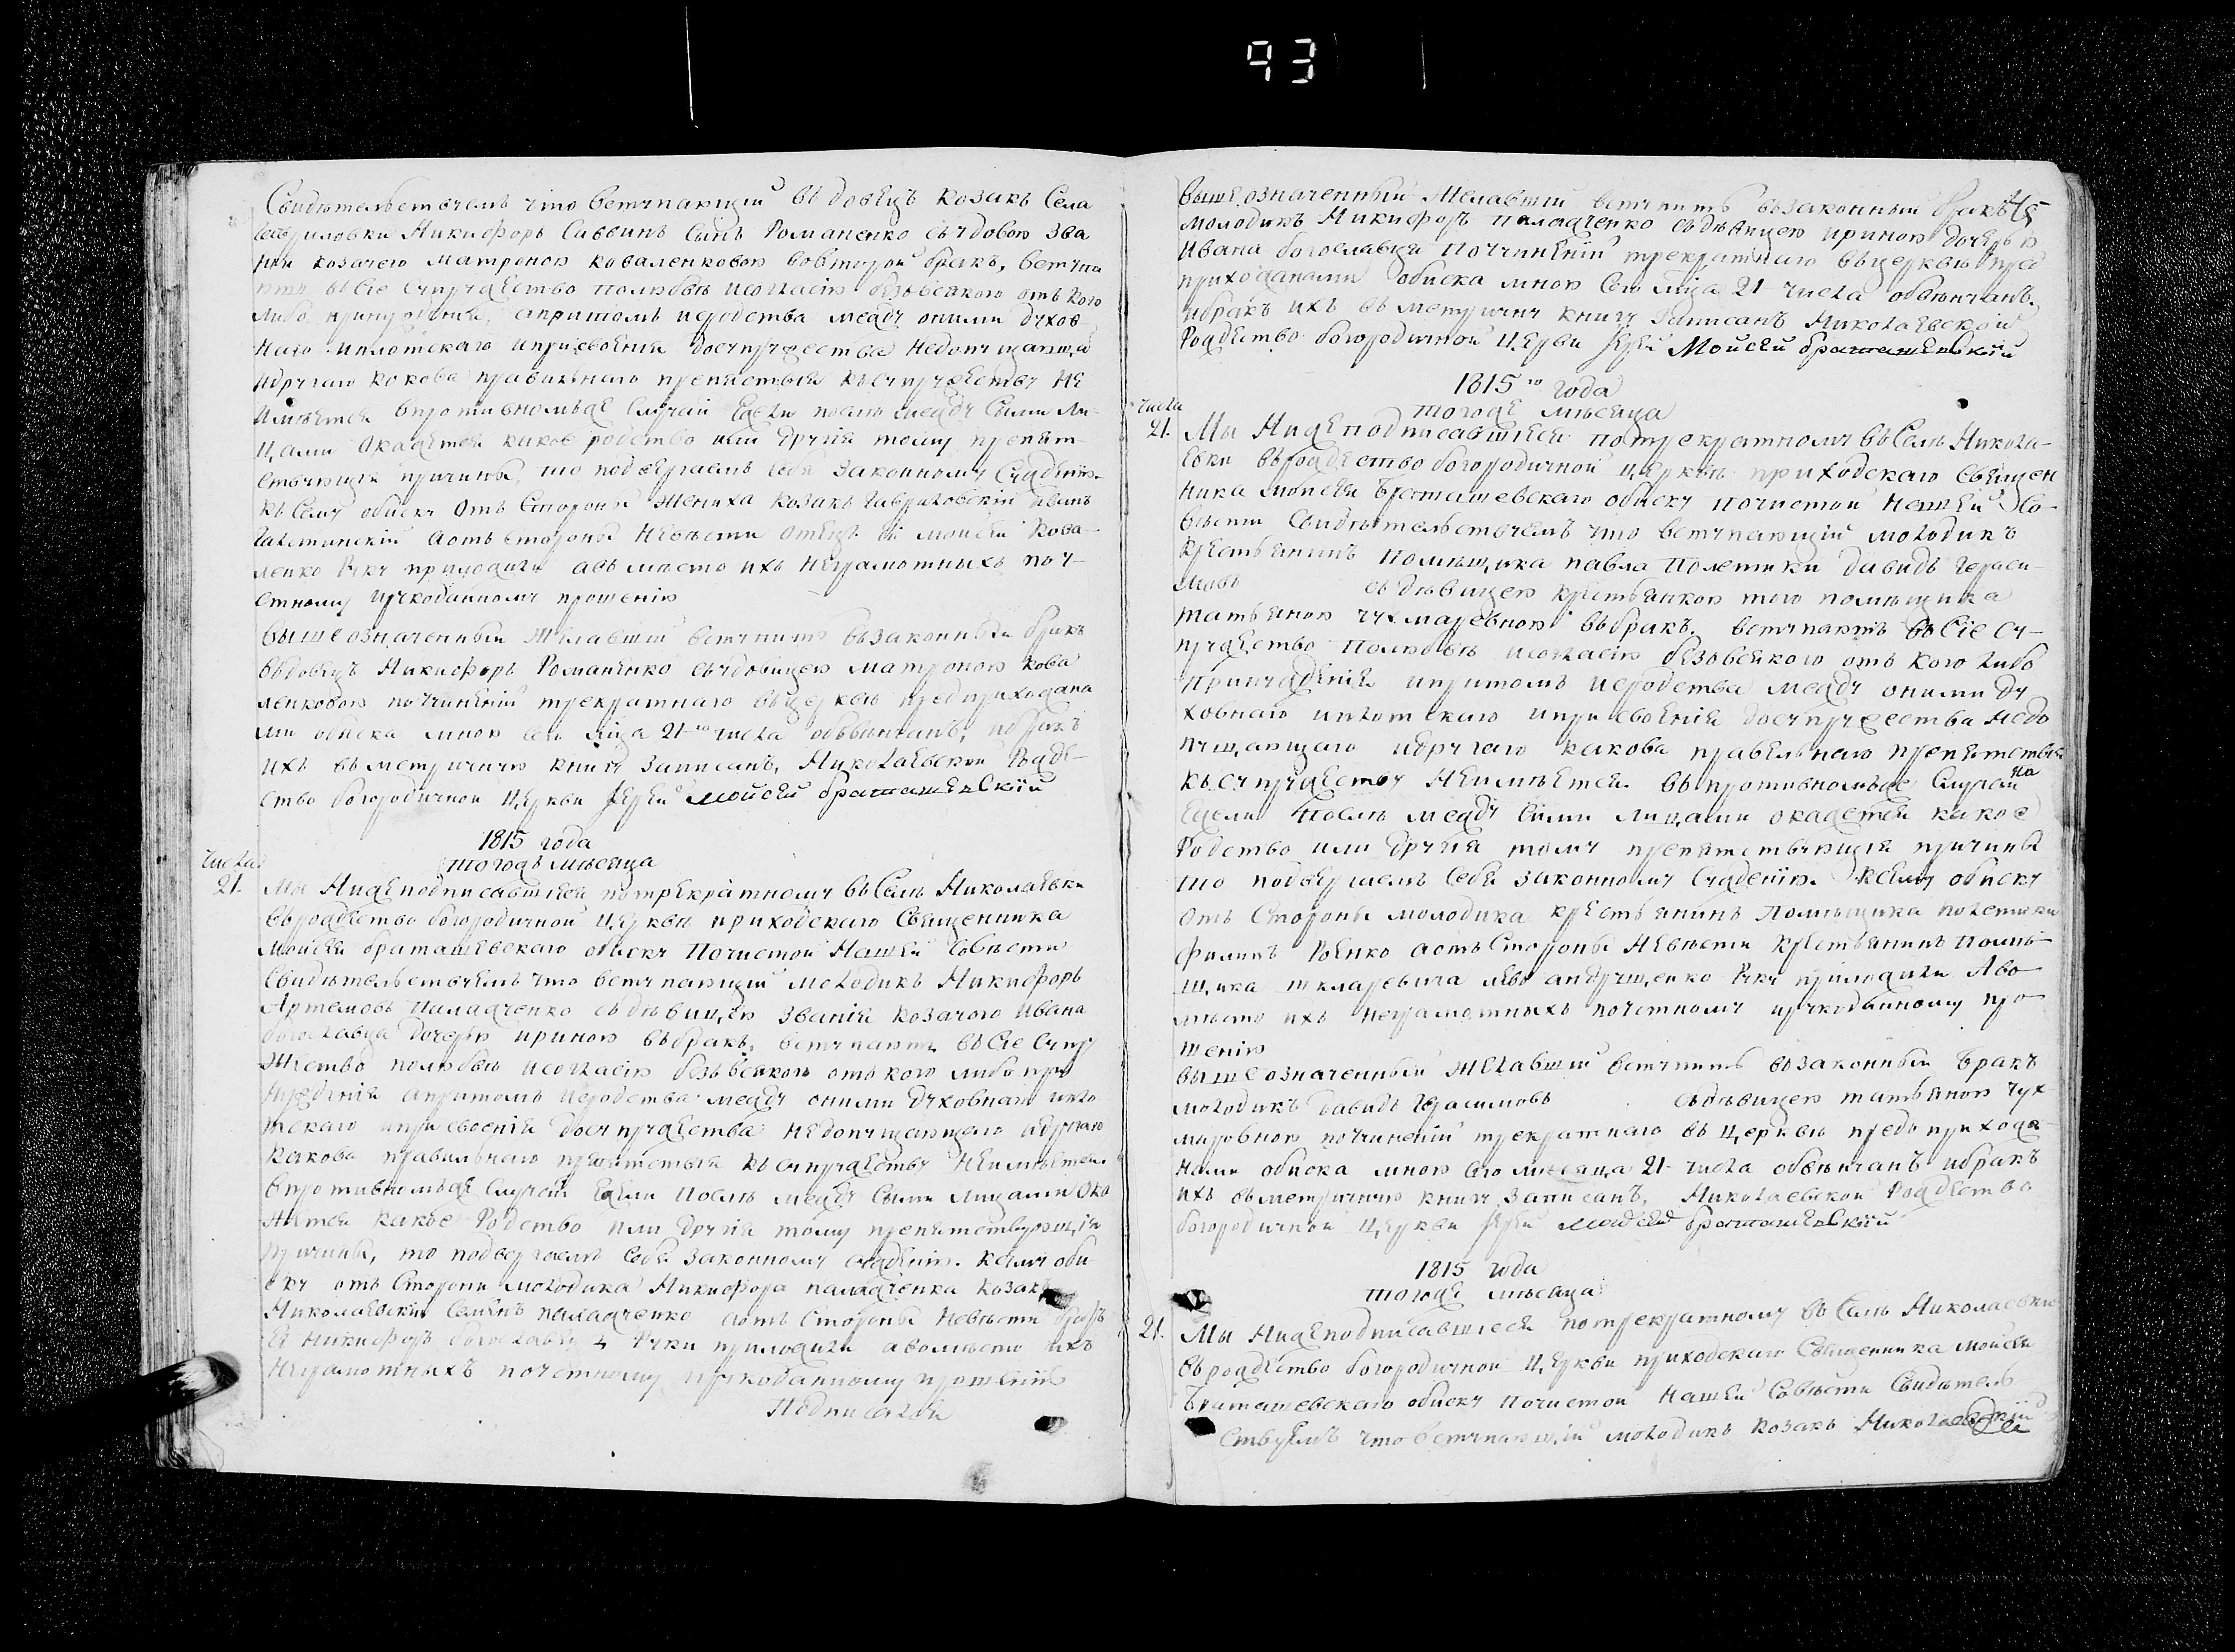 93
Свидѣтельствуемъ что вступающій вдовецъ козакъ села
Гавриловки Никифоръ Саввинъ сынъ Романенко съ удовою зва
нія козачего Матроною Коваленковою вовторой бракъ, вступа
ютъ въ сіе супружество полюбвѣ исогласію безъвсякого отъ кого
либо принужденія, апритомъ иродства между оними духов
наго иплотскаго иприсвоенія досупружества недопущающа
идругаго кокова правильнаго препятствія къ супружеству не
имѣется впротивномъже случаи ежели послѣ между сыми ли-
цами окажется какое родство или другія тому препят-
ствующія причины, то подвергаемъ себя законному сужденію.
къ сему обыску отъ стороны жениха козакъ Гавриловскій Иванъ
аотъ стороны невѣсты отецъ ея Мойсей Кова-
ленко руку приложили авъ мѣсто ихъ неграмотныхъ поу-
стному ирукоданному прошенію
вышеозначенный желавшій вступить взаконный бракъ
вдовецъ Никифоръ Романенко съ удовицею Матроною Кова
ленковою поучиненіи трекратнаго въ церквѣ предприхожана
ми обыска мною сего мца 21-го числа обвѣнчанъ, ибракъ
ихъ въ метричную книгу записанъ, Николаевской Рожде-
ство богородичной церкви іерей Мойсей Браташевскій
1815 года
тогожъ мѣсяца
числа
21.
Мы нижеподписавшіеся потрекратному въ селѣ Николаевки
въ рождество богородичной церкви приходскаго священника
Мойсея Браташевскаго обыску почистой нашей совѣсти
свидѣтельствуемъ что вступающій молодикъ Никифоръ
Артемовъ Паладченко съ дѣвицею званія козачого Ивана
богославца дочерью Ириною въ бракъ, вступаютъ въ сіе супру
жество полюбвѣ исогласію безъ всякого отъ кого либо при
нужденія апритомъ иродства между оними духовнаго ипло
тскаго иприсвоенія досупружества недопущающаго идругаго
какова правильнаго препятствія къ супружеству неимѣется.
впротивномъже случаи ежели послѣ между сыми лицами ока
жится какое родство или другія тому препятствующія
причины, то подвергаемъ себя законному сужденію. ксему обы
ску отъ стороны молодика Никифора Паладченка козакъ
Николаевскій Семенъ Паладченко аотъ стороны невѣсты братъ
ея Никифоръ богославецъ руки приложили авомѣсто ихъ
неграмотныхъ поустному ирукоданному прошенію
Подписался
вышеозначенный желавшій вступить взаконный бракъ
молодикъ Никифоръ Паладченко съ дѣвицею Ириною дочерью
Ивана богославця поучиненіи трекратнаго въ церквѣ пред
прихожанами обыска мною сего мца 21 числа обвѣнчанъ.
ибракъ ихъ въ метричну книгу записанъ Николаевской
Рождество богородичной церкви іерей Мойсей Браташевскій
1815го года
тогоже мѣсяца
числа
21.
Мы нижеподписавшіеся потрекратному въ селѣ Никола-
евки въ рождество богородичной церквѣ приходскаго священ
ника Мойсея Браташевскаго обыску почистой нашей со-
вѣсти свидѣтельствуемъ что вступающій молодикъ
крестьянинъ помѣщика Павла Полетики Давидъ Гераси-
мовъ съ дѣвицею крестьянкою того помѣщика
Татьяною Чухмаревною въ бракъ. вступаютъ въ сіе су-
пружество полюбвѣ исогласію безъвсякого отъ кого либо
принужденія ипритомъ иродства между оними ду
ховнаго иплотскаго иприсвоенія досупружества недо
пущающаго идругаго какова правельнаго препятствія
къ супружеству неимѣется. въ противномъже случаи
на
ежели послѣ между сіими лицами окажется какое
родство или другія тому препятствующія причины
то подвергаемъ себя законному сужденію. ксему обыску
отъ стороны молодика крестьянинъ помѣщика Полетики
Филипъ аотъ стороны невѣсты крестьянинъ помѣ-
щика Шкляревича Левъ Андрущенко руку приложили Аво
мѣсто ихъ неграмотныхъ поустному ирукоданному про-
шенію
вышеозначенный желавшій вступить взаконный бракъ
молодикъ Давидъ Герасимовъ съ дѣвицею Татьяною Чух
маровною поучиненіи трекратнаго въ церквѣ предъ прихожа-
нами обыска мною сего мѣсяца 21 числа обвѣнчанъ ибракъ
ихъ въ метричную книгу записанъ, Николаевской Рождество
богородичной церкви іерей Мойсей Браташевскій
1815 года
тогоже мѣсяца
21.
Мы нижеподписавшіеся потрекратному въ селѣ Николаевки
въ рождество богородичной церкви приходскаго священника Мойсея
Браташевскаго обыску почистой нашей совѣсти свидѣтель
ствуемъ что вступающій молодикъ козакъ Николаевскій